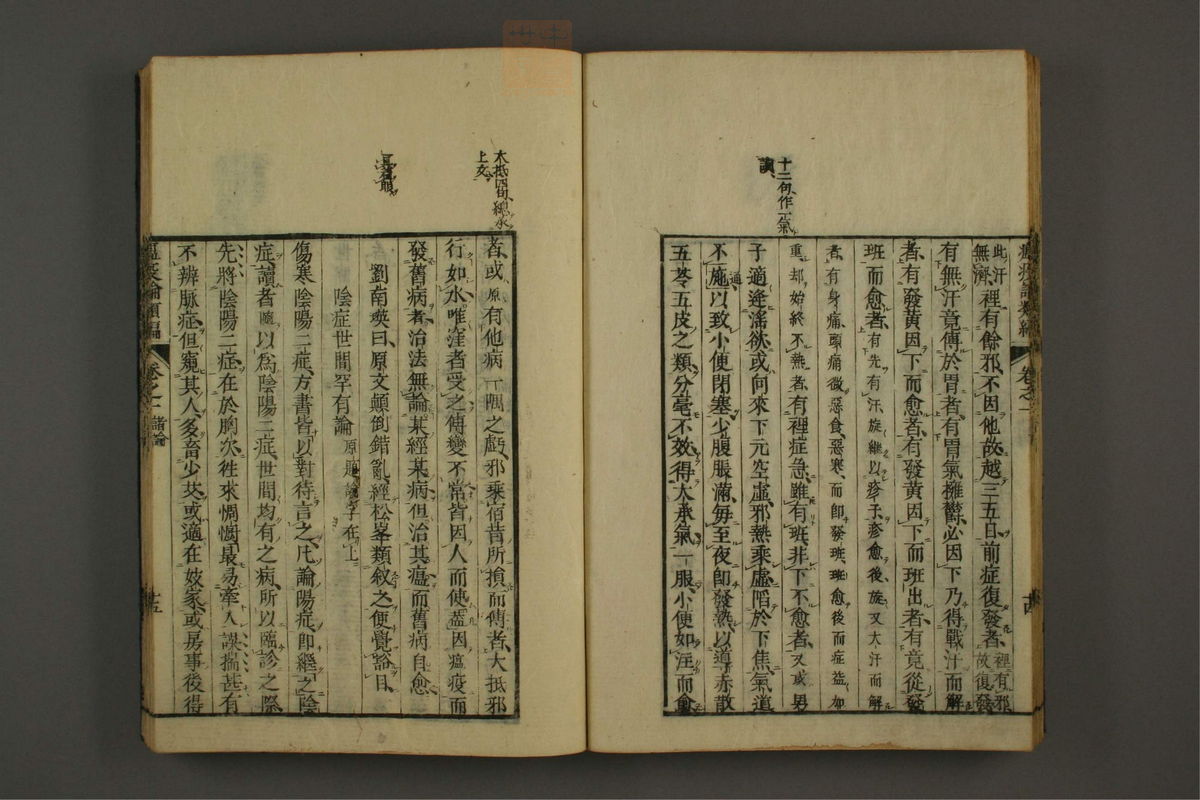 十二句作元氣
此汗無濟、裡有餘邪、不因他故越三五日前症復發者、裡有邪故復發
有無汗竟傳於胃者有胃氣擁欝必因下乃得戰汗而解
者有發黃因下而愈者有發黃因下而班出者有竟從發
班而愈者有先有汗旋繼以疹子疹愈後旋又大汗而解
者有身痛頭痛微惡食惡寒而即發班班愈後而症益加
重却始終不熱者有裡症急雖有班非下不愈者又或男
子適逢淫欲或向來下元空虛邪熱乘虛陷於下焦氣道
不施通以致小便閉塞少腹脹滿毎至夜即發熱以導赤散
五苓五皮之類分毫不效得大承氣一服小便如注而愈
大抵四句總承
上文
者或原有他病一隅之虧邪乘宿昔所損而傳者大抵邪
行如水唯窪者受之傳變不常皆因人而使葢因瘟疫而
發舊病者治法無論某經某病但治其瘟而舊病自愈
劉南瑛曰原文顛倒錯亂經松峯類敘之便覺豁目
陰症世間罕有論 原題論字在上
傷寒陰陽二症方書皆以對待言之凡論陽症即繼之陰
症讀者隨以為陰陽二症世間均有之病所以臨診之際
先將陰陽二症在於胸次徃來惆悵最易牽入誤揣甚有
不辨脈症但窺其人多畜少艾或適在妓家或房事後得
瘟疫論類編 卷之一 諸論 十五